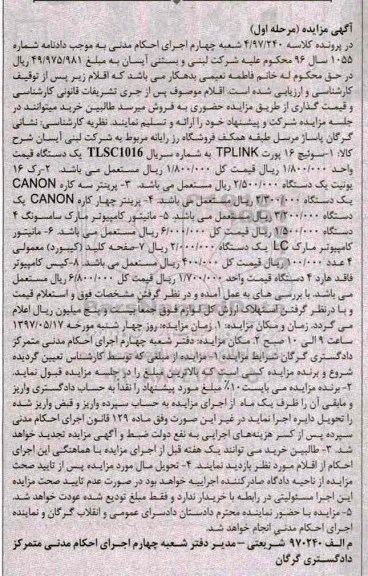 آگهی مزایده (مرحله اول)
در پرونده کلاسه ۴/۹۷/۲۴۰ شعبه چهارم اجرای احکام مدنی به موجب دادنامه شماره
۱۰۵۵ سال ۹۶ محکوم علیه شرکت لبنی و بستنی آیسان به مبلغ ۴۹/۹۷۵/۹۸۱ ریال
در حق محکوم له خانم فاطمه نعیمی بدهکار می باشد که اقلام زیر پس از توقیف
کارشناسی و ارزیابی شده است. اقلام موصوف پس از جری تشریفات قانونی کارشناسی
و قیمت گذاری از طریق مزایده حضوری به فروش میرسد طالبین خرید میتوانند در
جلسه مزایده شرکت و پیشنهاد خود را ارائه و تسلیم نمایند. نظریه کارشناسی: نشانی
گرگان پاساژ مرسل طبقه همکف فروشگاه رز رایانه مربوط به شرکت لبنی آیسان شرح
کالا: ۱-سوئیچ ۱۶ پورت TPLINK به شماره سریال TLSC1016 یک دستگاه قیمت
واحد ۱/۸۰۰/۰۰۰ ریال قیمت کل ۱/۸۰۰/۰۰۰ ریال مستعمل می باشد. ۲-رک ۱۶
یونیت یک دستگاه ۲/۵۰۰/۰۰۰ ریال مستعمل می باشد. ۳- پرینتر سه کاره CANON
یک دستگاه ۲/۳۰۰/۰۰۰ ریال مستعمل می باشد. ۴- پرینتر چهار کاره CANON یک
دستگاه ۳/۲۰۰/۰۰۰ ریال مستعمل می باشد. ۵- مانیتور کامپیوتر مارک سامسونگ ۴
دستگاه ۱/۵۰۰/۰۰۰ ریال قیمت کل ۶/۰۰۰/۰۰۰ ریال مستعمل می باشد. ۶- مانیتور
کامپیوتر مارک LC یک دستگاه ۲/۰۰۰/۰۰۰ ریال ۷-صفحه کلید (کیبورد) معمولی
۴ عدد ۱۰۰/۰۰۰ ریال قیمت کل ۴۰۰/۰۰۰ ریال مستعمل می باشد. ۸-کیس کامپیوتر
فاقد هارد ۴ دستگاه قیمت واحد ۱/۷۰۰/۰۰۰ ریال قیمت کل ۶/۸۰۰/۰۰۰ ریال مستعمل
می باشد. با بررسی های به عمل آمده و در نظر گرفتن مشخصات فوق و استعلام قیمت
و با در نظر گرفتن استهلاک ارزش کل لوازم فوق جمعا بیست و پنج میلیون ریال اعلام
می گردد. زمان و مکان مزایده: ۱. زمان مزایده: روز چهار شنبه مورخه ۱۳۹۷/۰۵/۱۷
ساعت ۹ الی ۱۰ صبح ۲. مکان مزایده: دفتر شعبه چهارم اجرای احکام مدنی متمرکز
دادگستری گرگان شرایط مزایده ۱- مزایده از مبلغی که توسط کارشناس تعیین گردیده
شروع و برنده مزایده کسی است که بالاترین مبلغ را در جلسه مزایده قبول نماید.
۲- برنده مزایده می بایست ۱۰٪ مبلغ مورد پیشنهاد را نقدا به حساب دادگستری واریز
و مابقی آن را ظرف یک ماه از اجرای مزایده به حساب سپرده واریز و قبض واریز شده
را تحویل دایره اجرا نماید در غیر این صورت وفق ماده ۱۲۹ قانون اجرای احکام مدنی
سپرده پس از کسر هزینه‌های اجرایی به نفع دولت ضبط و آگهی مزایده تجدید خواهد
شد. ۳- طالبین خرید می توانند یک هفته قبل از اجرای مزایده با هماهنگی این اجرای
احکام از اقلام مورد نظر بازدید نمایند. ۴- تحویل مال مورد مزایده پس از تایید صحت
مزایده از ناحیه دادگاه صادرکننده اجراییه خواهد بود در صورت عدم تایید صحت مزایده
این اجرا مسئولیتی در رابطه با خریدار ندارد و فقط مبلغ تودیع شده عودت خواهد شد.
۵- مزایده با حضور نماینده محترم دادستان دادسرای عمومی و انقلاب گرگان و نماینده
اجرای احکام مدنی انجام خواهد شد.
م الف ۹۷۰۲۴۰ شریعتی – مدیر دفتر شعبه چهارم اجرای احکام مدنی متمرکز
دادگستری گرگان